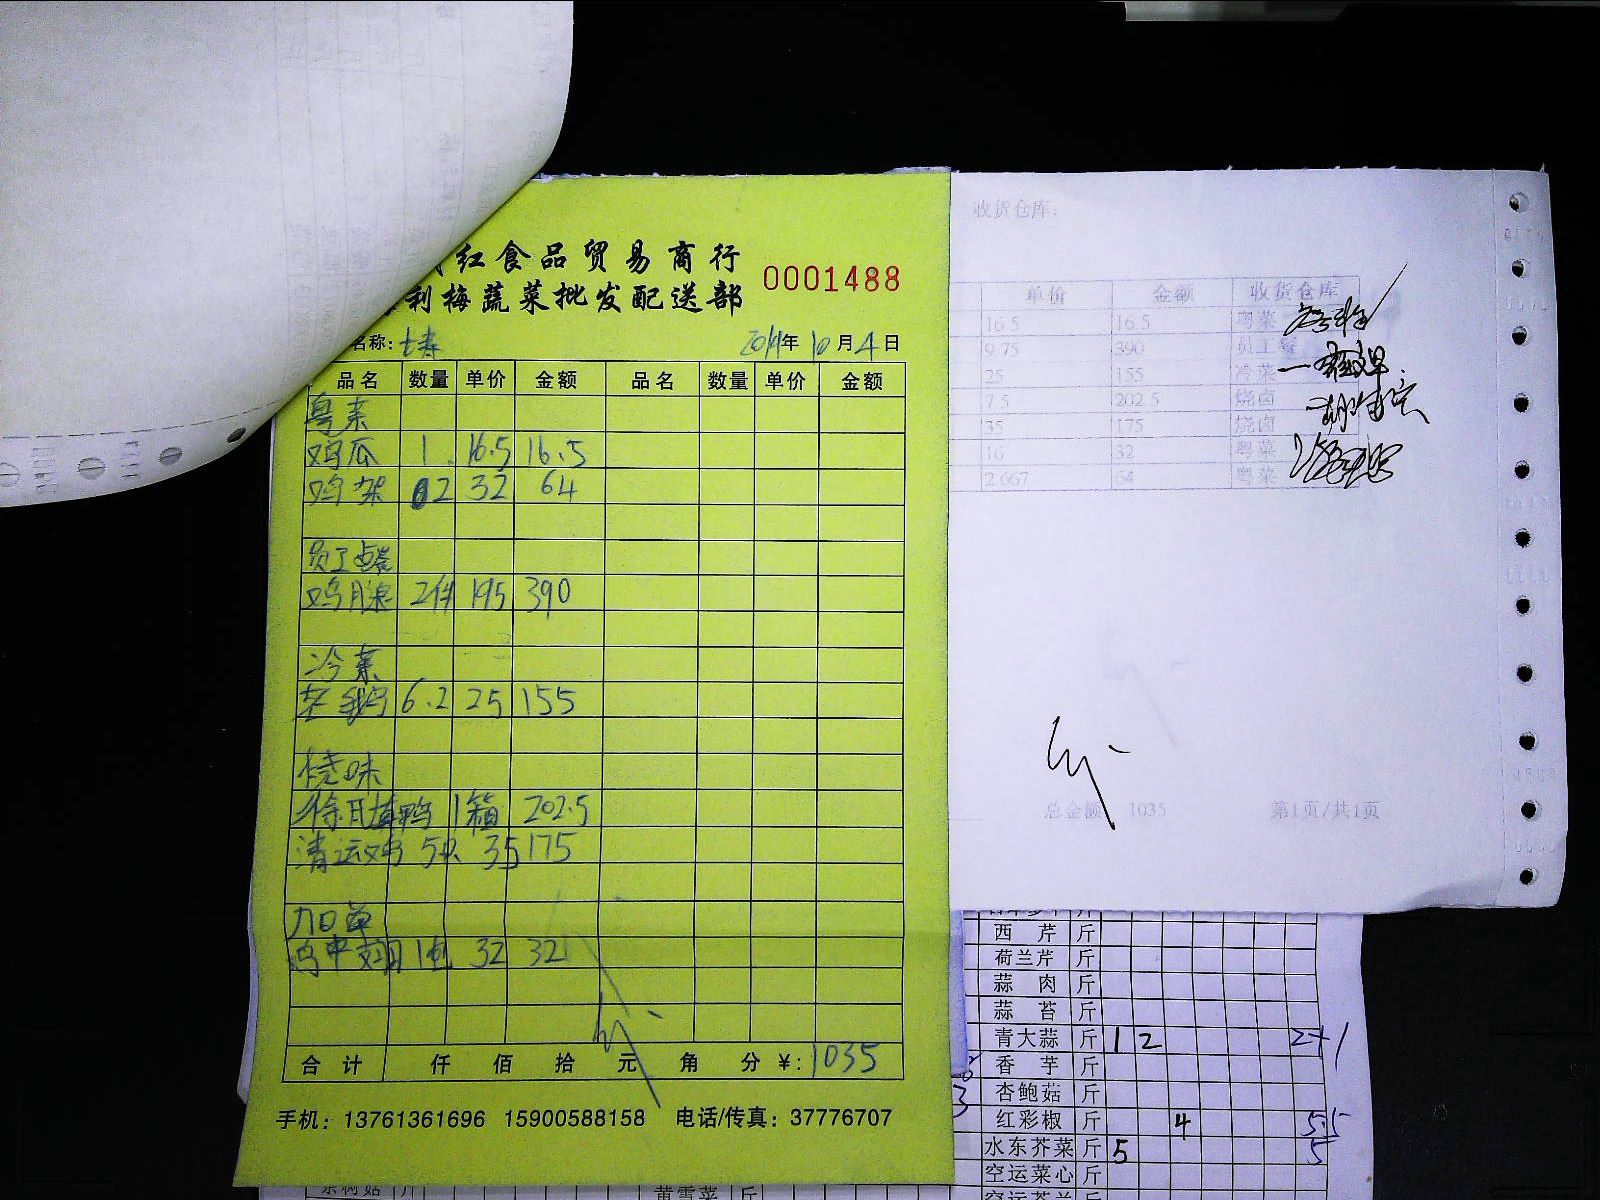 红食品贸易商行
利梅蔬菜批发配送部
0001488
名称:
2011年 10月4日
品名 数量 单价 金额 品名 数量 单价 金额
粤菜
鸡瓜 1. 16.5 16.5
鸡架 2 32 64
员工
鸡腿 2件 195 390
冷菜
6.2 25 155
烧味
填鸭 1箱 202.5
清运鸡 5只 35 175
加单
鸡中翅 1包 32 32
合计 仟 佰 拾 元 角 分 ¥: 1035
手机: 13761361696 15900588158 电话/传真: 37776707
收货仓库:
单价 金额 收货仓库
16.5 16.5 粤菜
9.75 390 员工餐
25 155 冷菜
7.5 202.5 烧卤
35 175 烧卤
16 32 粤菜
2.667 64 粤菜
总金额 1035 第1页/共1页
西芹 斤
荷兰芹 斤
蒜肉 斤
蒜苔 斤
青大蒜 斤 1 2 2+1
香芋 斤
杏鲍菇 斤
红彩椒 斤 4 5.5
水东芥菜 斤 5 5
空运菜心 斤
黄雪菜 斤